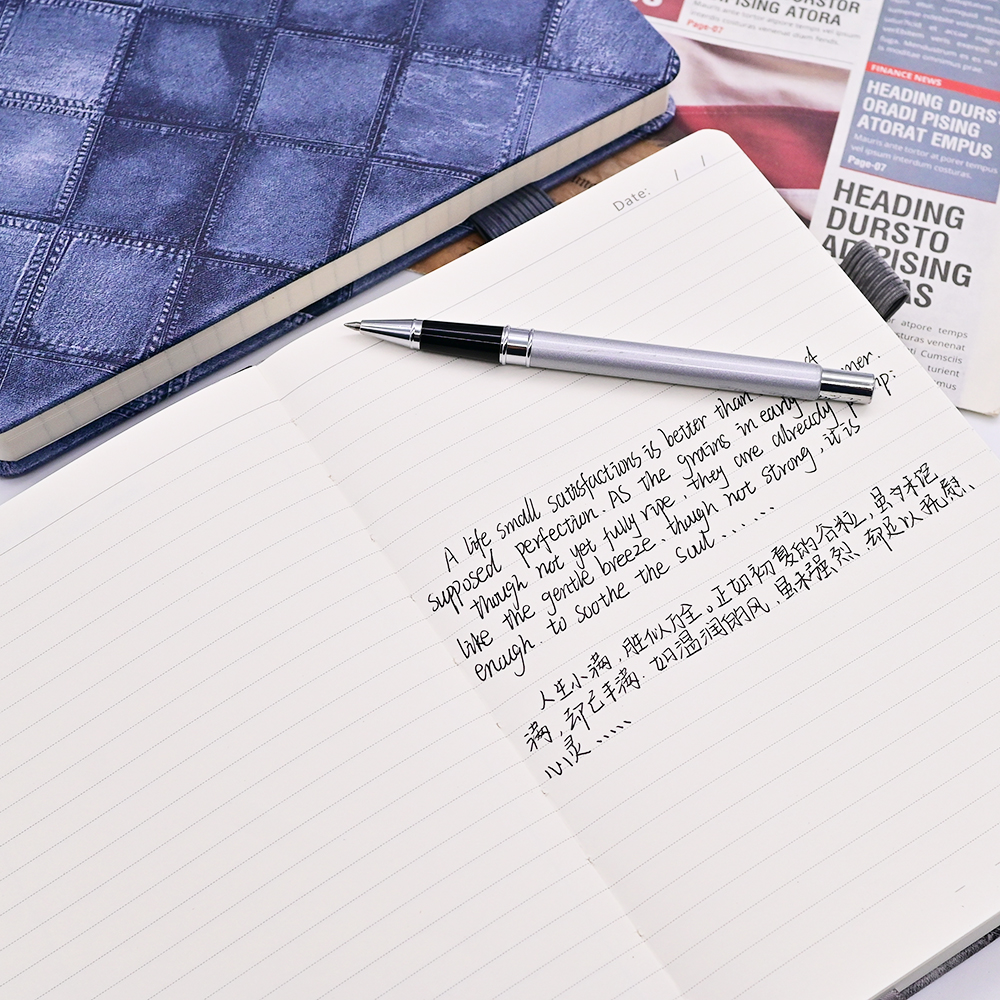 RSTOR
PISING ATORA
Mauris ante tortor atpora tempu vel ipsum
sturas venenatis diam fends.
Page-07
FINANCE NEWS
HEADING DURST
ORADI PISING
ATORAT EMPUS
Mauris ante tortor at porer tempus
vel ipsum interdum costuras.
Page-07
HEADING
DURSTO
PISING
AS
atpore temps
sturas venenat
ti Cumsciis
turient
Date: / /
A life small satisfactions is better than
supposed perfection. AS the grains in early mer.
though not yet fully ripe, they are already p:
like the gentle breeze, though not strong, it is
enough to soothe the sual......
人生小满,胜似万全。正如初夏的谷粒,虽夕未饱
满,却已丰满.如温润的风,虽未强烈.却足以抚慰、
心灵......